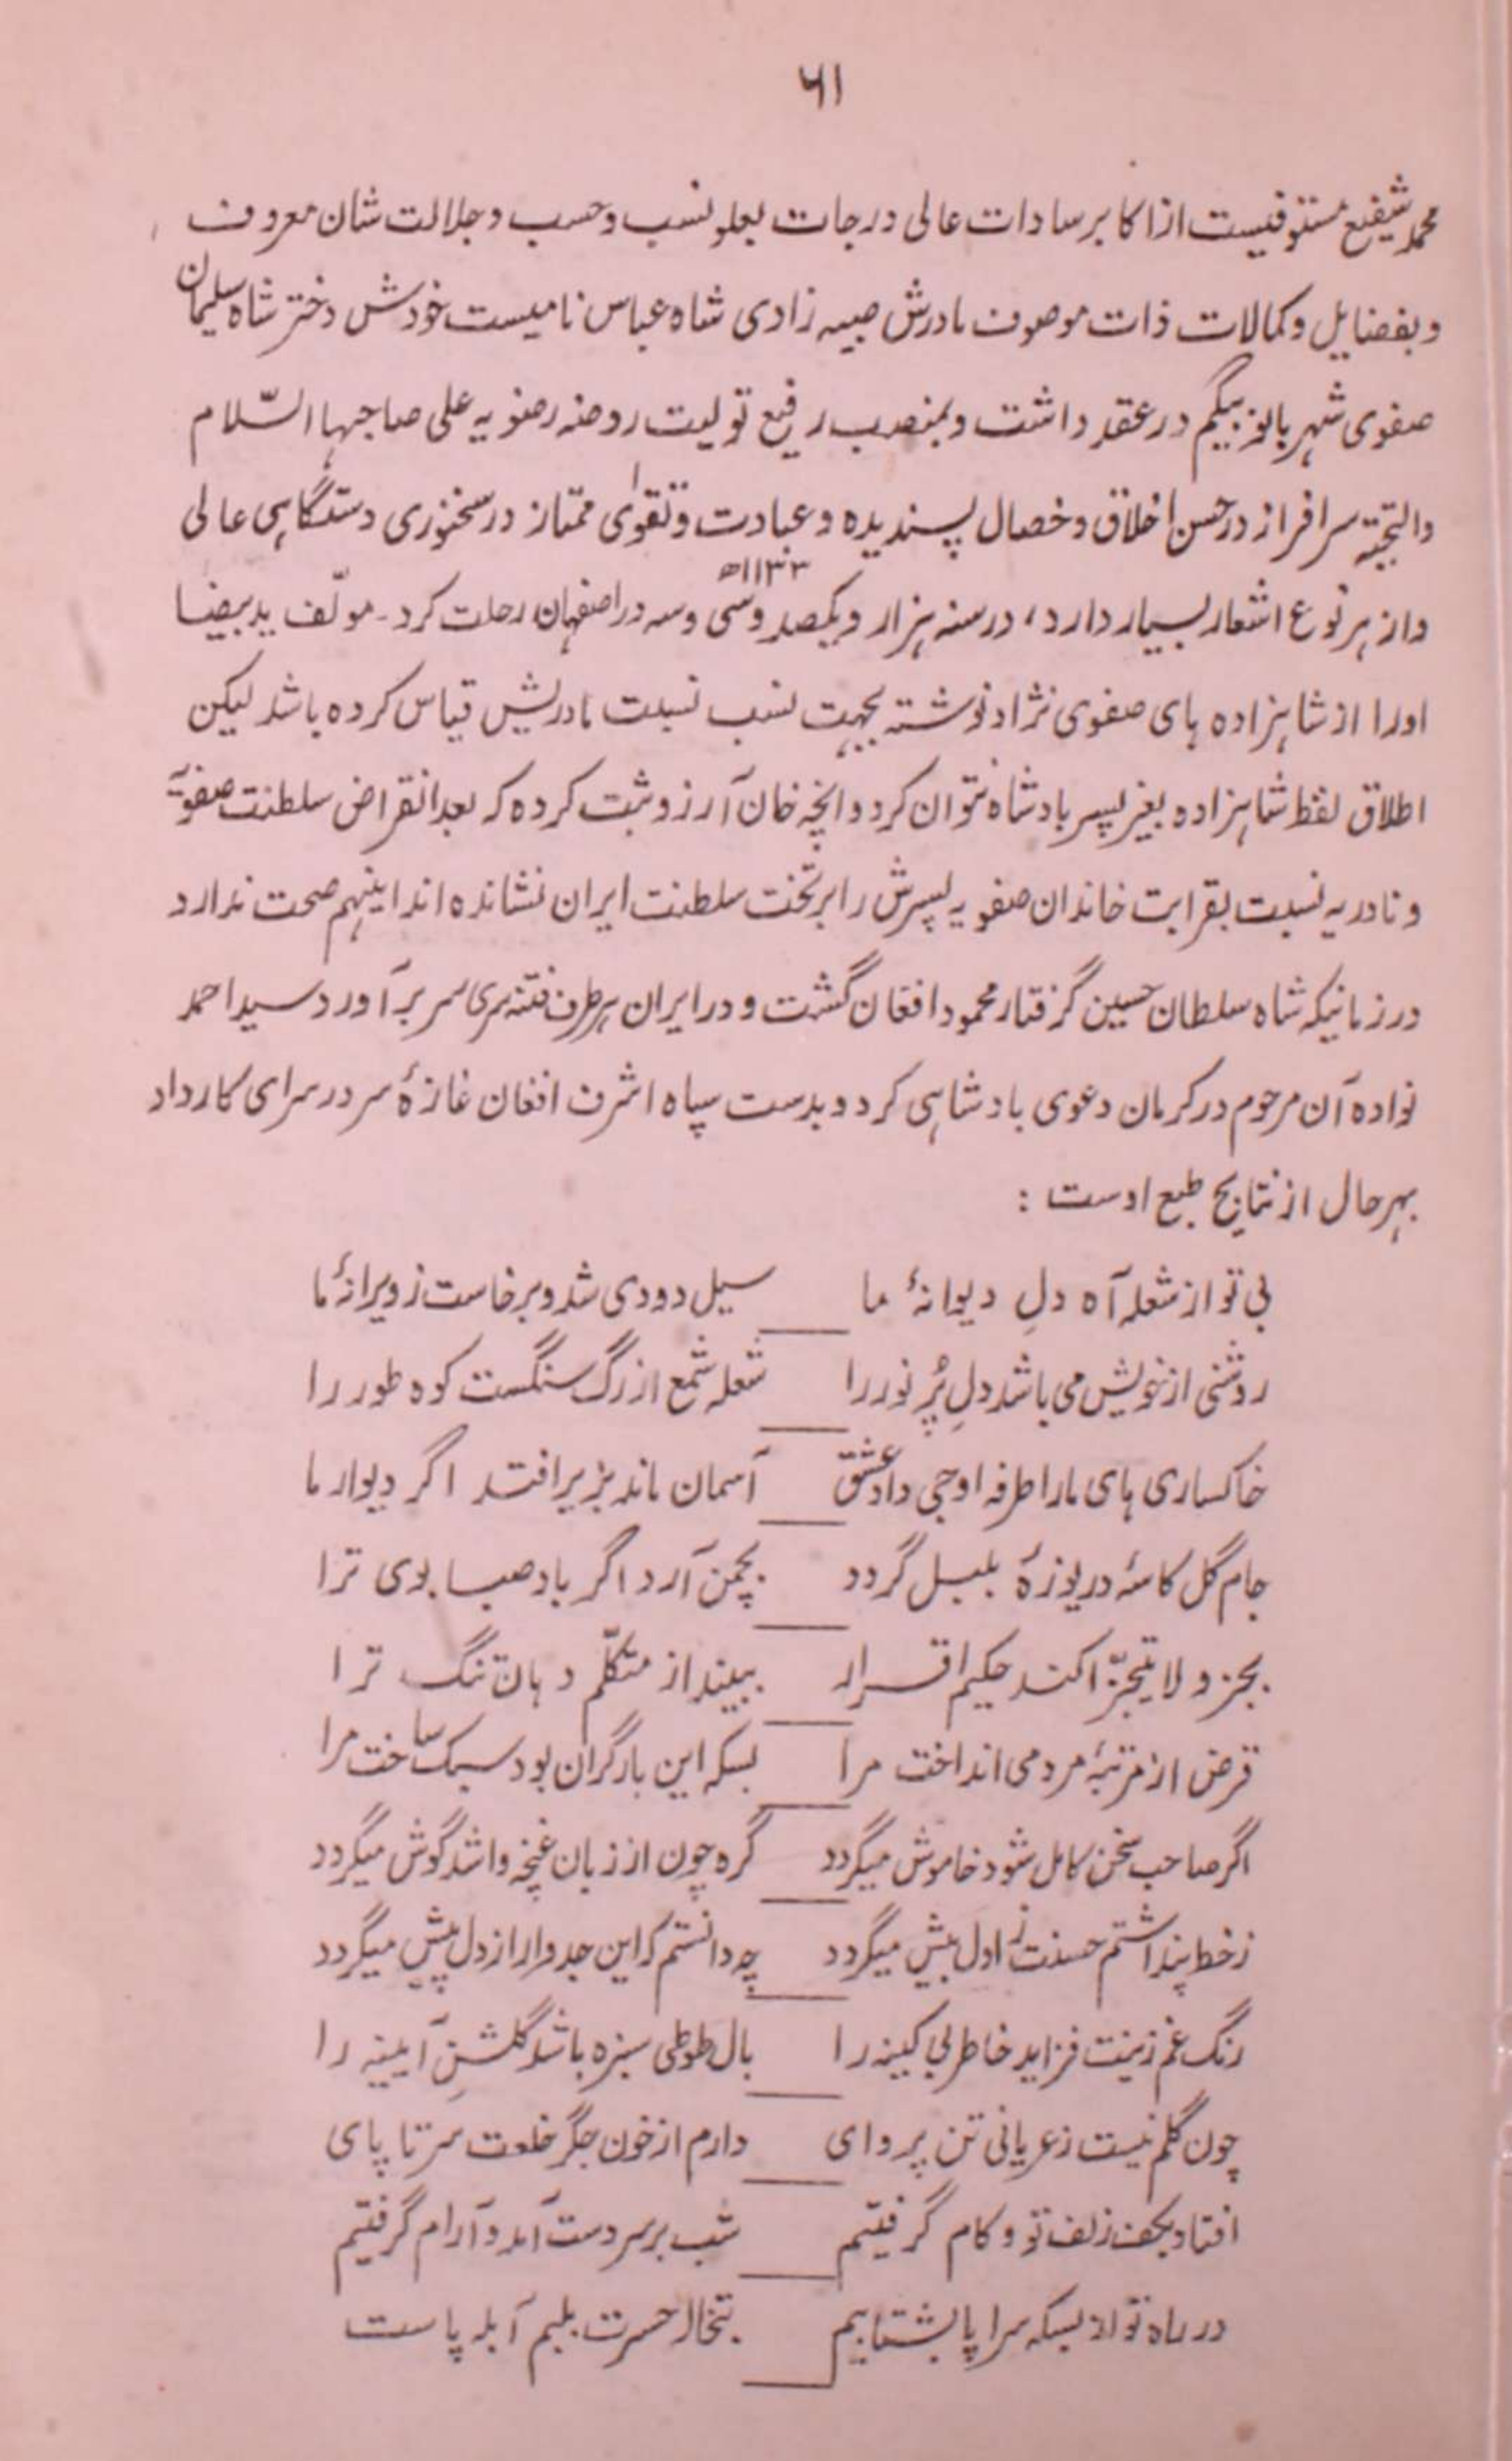 ۶۱
محمد شفیع مستوفیست از اکابر سادات عالی درجات بعلو نسب و حسب و جلالت شان معروف
و بفضایل و کمالات ذات موصوف مادرش صبیه زادی شاه عباس نامیست خودش دختر شاه سلیمان
صفوی شهر بانو بیگم در عقد داشت و بمنصب رفیع تولیت روضه رضویه علی صاحبها السّلام
والتحیته سرافراز در حسن اخلاق و خصال پسندیده و عبادت و تقوٰی ممتاز در سخنوری دستگاهی عالی
و از هر نوع اشعار بسیار دارد، در سنه هزار و یکصد و سی و سه ۱۱۳۳ھ در اصفهان رحلت کرد۔ مولّف ید بیضا
او را از شاهزاده های صفوی نژاد نوشته بجهت نسب نسبت مادریش قیاس کرده باشد لیکن
اطلاق لفظ شاهزاده بغیر پسر بادشاه نتوان کرد و انچه خان آرزو ثبت کرده که بعد انقراض سلطنت صفویّه
و نادریه نسبت بقرابت خاندان صفویه پسرش را بر تخت سلطنت ایران نشانده اند اینهم صحت ندارد
در زمانیکه شاه سلطان حسین گرفتار محمود افغان گشت و در ایران هر طرف فتنه سری سر برآورد سید احمد
نواده آن مرحوم در کرمان دعوی بادشاهی کرد و بدست سپاه اشرف افغان غازۀ سر در سرای کار داد
بهر حال از نتایج طبع اوست :
بی تو از شعله آه دلِ دیوانۀ ما سیل دودی شد و برخاست ز ویرانۀ ما
روشنی از خویش می باشد دلِ پُر نور را شعله شمع از رگ سنگست کوه طور را
خاکساری های ما را طرفه اوجی داد عشق آسمان ماند بزیر افتد اگر دیوار ما
جام گل کاسۀ دریوزۀ بلبل گردد بچمن آرد اگر باد صبا بوی ترا
بجزو لا یتجزّا کند حکیم اقرار ببیند از متکلّم دهان تنگ ترا
قرض از مرتبۀ مردمی انداخت مرا بسکه این بار گران بود سبک ساخت مرا
اگر صاحب سخن کامل شود خاموش میگردد گره چون از زبان غنچه وا شد گوش میگردد
ز خط پنداشتم حسنت ز اول بیش میگردد چه دانستم که این جدوار از دل پیش میگردد
رنگ غم زینت فزاید خاطر بی کینه را بال طوطی سبزه باشد گلشنِ آیینه را
چون گلم نیست ز عریانی تن پروای دارم از خون جگر خلعت سر تا پای
افتاد بکف زلف تو و کام گرفتیم شب بر سر دست آمد و آرام گرفتیم
در راه تو از بسکه سراپا بشتابیم تبخال حسرت بلبم آبله پاست